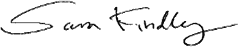 Sara Findley